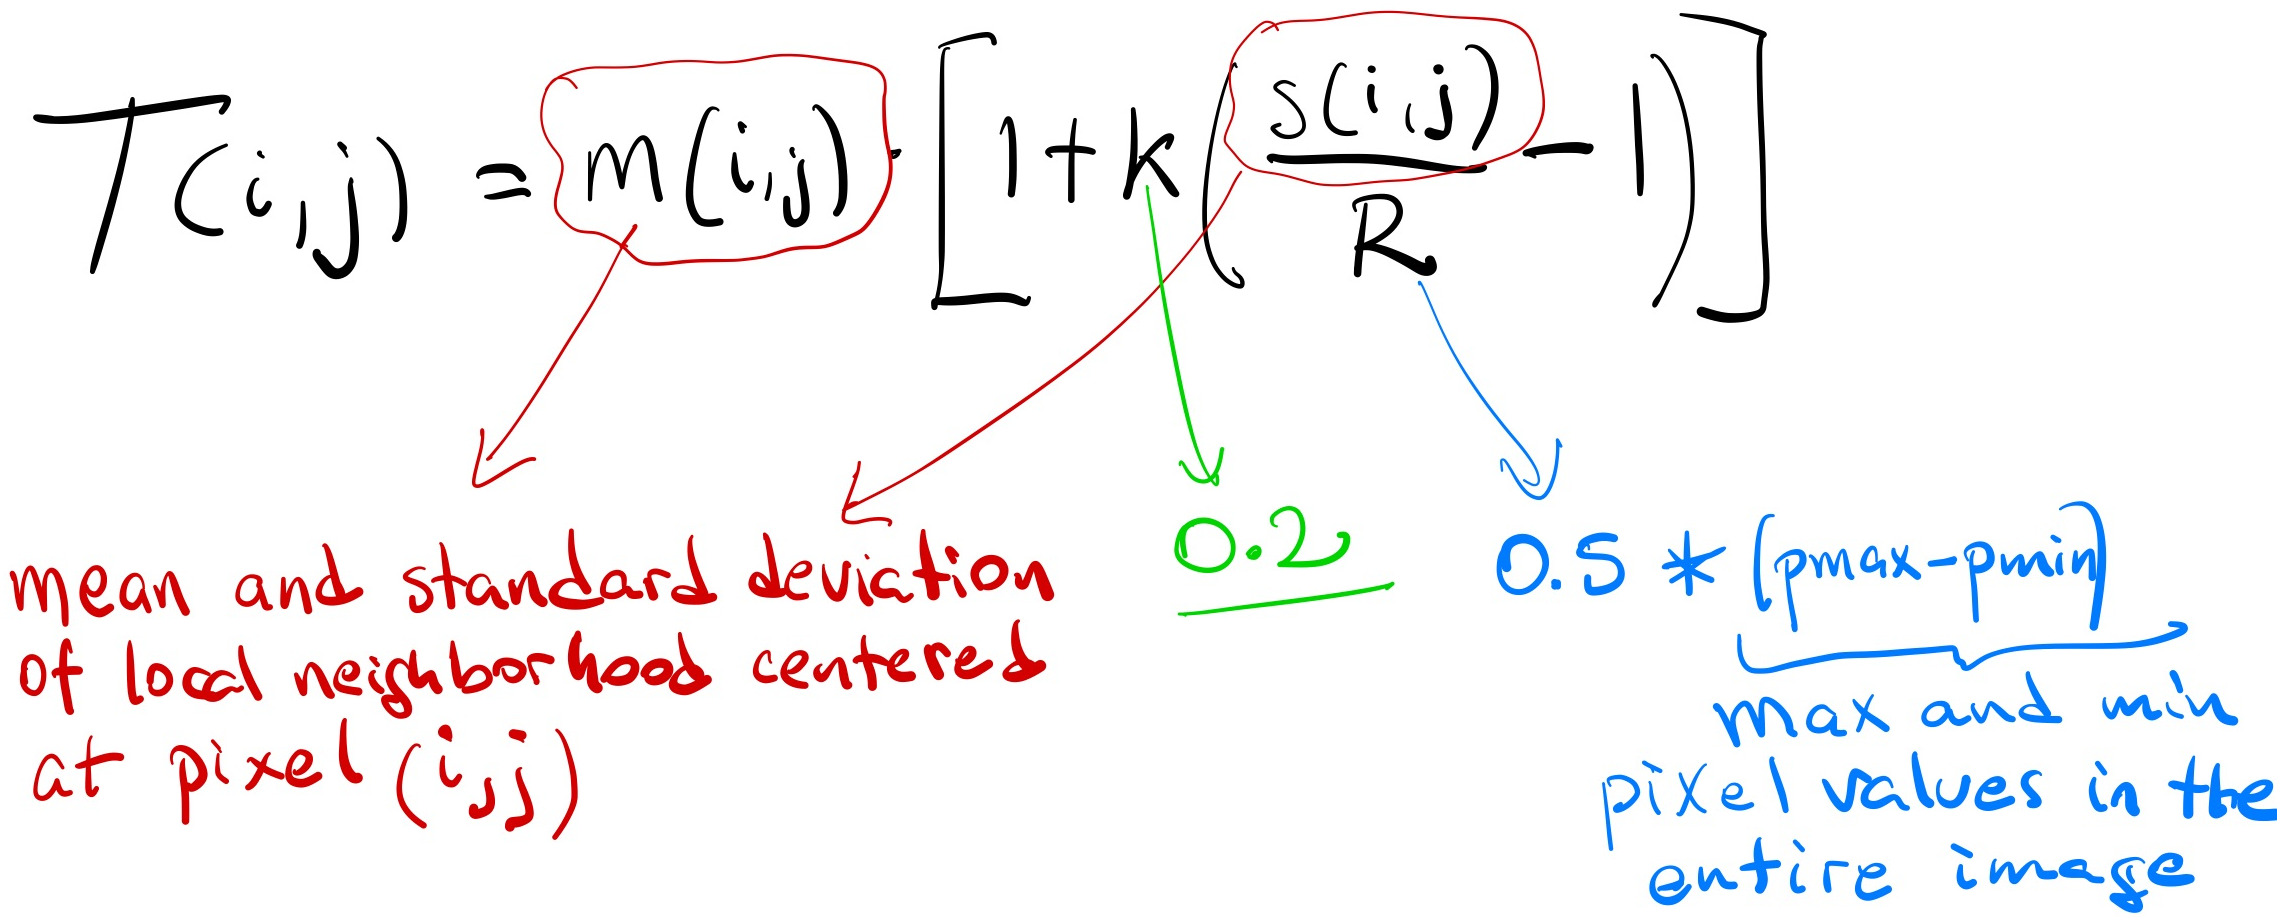 T(i,j) = m(i,j) · [1 + k (s(i,j)/R - 1)]
mean and standard deviation
of local neighborhood centered
at pixel (i,j)
0.2
0.5 * (pmax-pmin)
max and min
pixel values in the
entire image